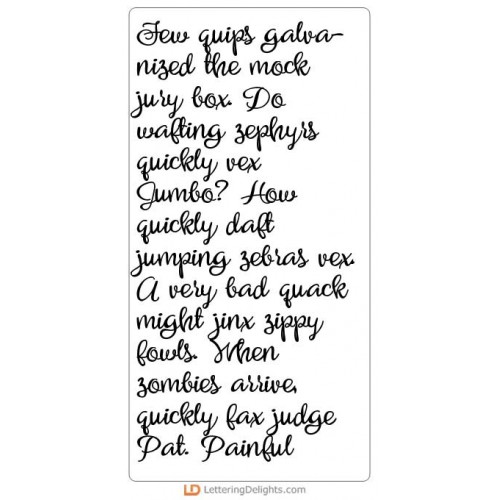 Few quips galva-
nized the mock
jury box. Do
wafting zephyrs
quickly vex
Jumbo? How
quickly daft
jumping zebras vex.
A very bad quack
might jinx zippy
fowls. When
zombies arrive,
quickly fax judge
Pat. Painful
LD LetteringDelights.com